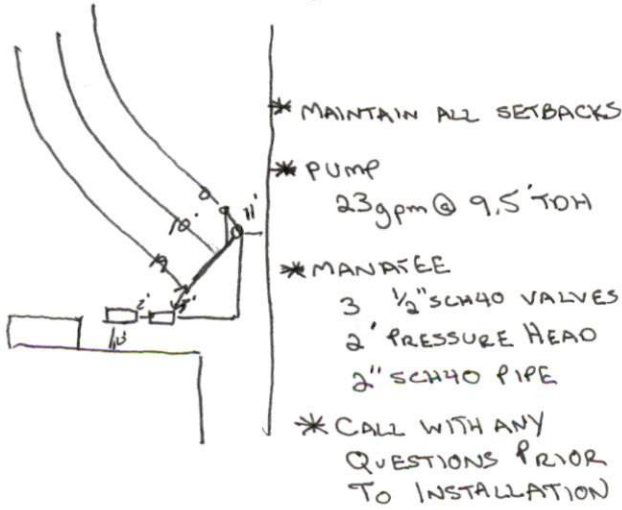 * MAINTAIN ALL SETBACKS
* PUMP
23gpm @ 9.5' TDH
* MANATEE
3 1/2" SCH40 VALVES
2' PRESSURE HEAD
2" SCH40 PIPE
* CALL WITH ANY
QUESTIONS PRIOR
TO INSTALLATION
11'
10'
2'
5'